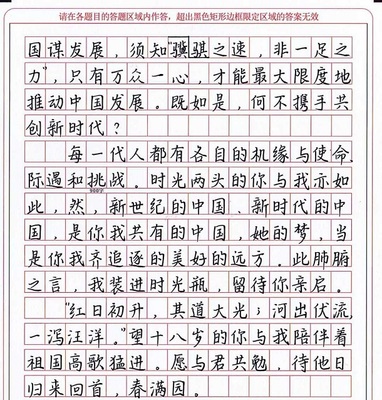 请在各题目的答题区域内作答，超出黑色矩形边框限定区域的答案无效
国谋发展，须知“骥骐之速，非一足之
力”，只有万众一心，才能最大限度地
推动中国发展。既如是，何不携手共
创新时代？
每一代人都有各自的机缘与使命，
际遇和挑战。时光两头的你与我亦如
此，然，新世纪的中国、新时代的中
国，是你我共有的中国，她的梦，当
是你我齐追逐的美好的远方。此肺腑
之言，我装进时光瓶，留待你亲启。
“红日初升，其道大光；河出伏流，
一泻汪洋。”望十八岁的你与我陪伴着
祖国高歌猛进。愿与君共勉，待他日
归来回首，春满园。